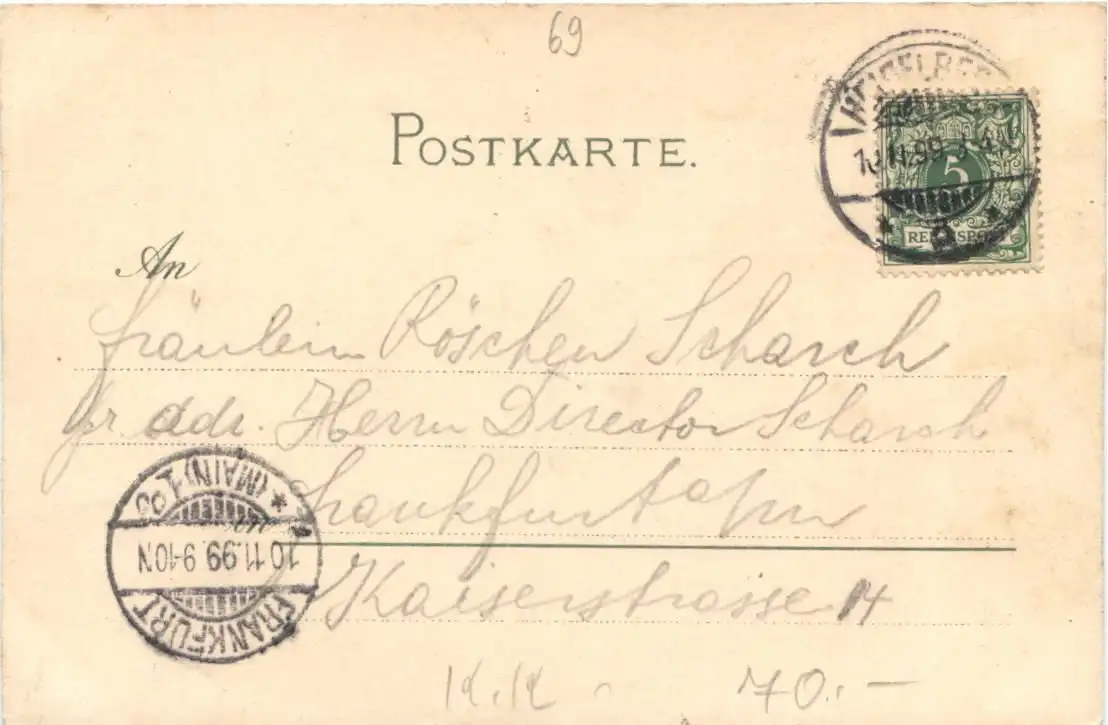 69
HEIDELBERG
10.11.99. 3-4N
5
REICHSPOST
POSTKARTE.
An
Fräulein Röschen Scharch
pr adr. Herrn Director Scharch
Frankfurt a/m
Kaiserstrasse 14
FRANKFURT
10.11.99. 9-10N
* (MAIN) 1
K.K - 70.-